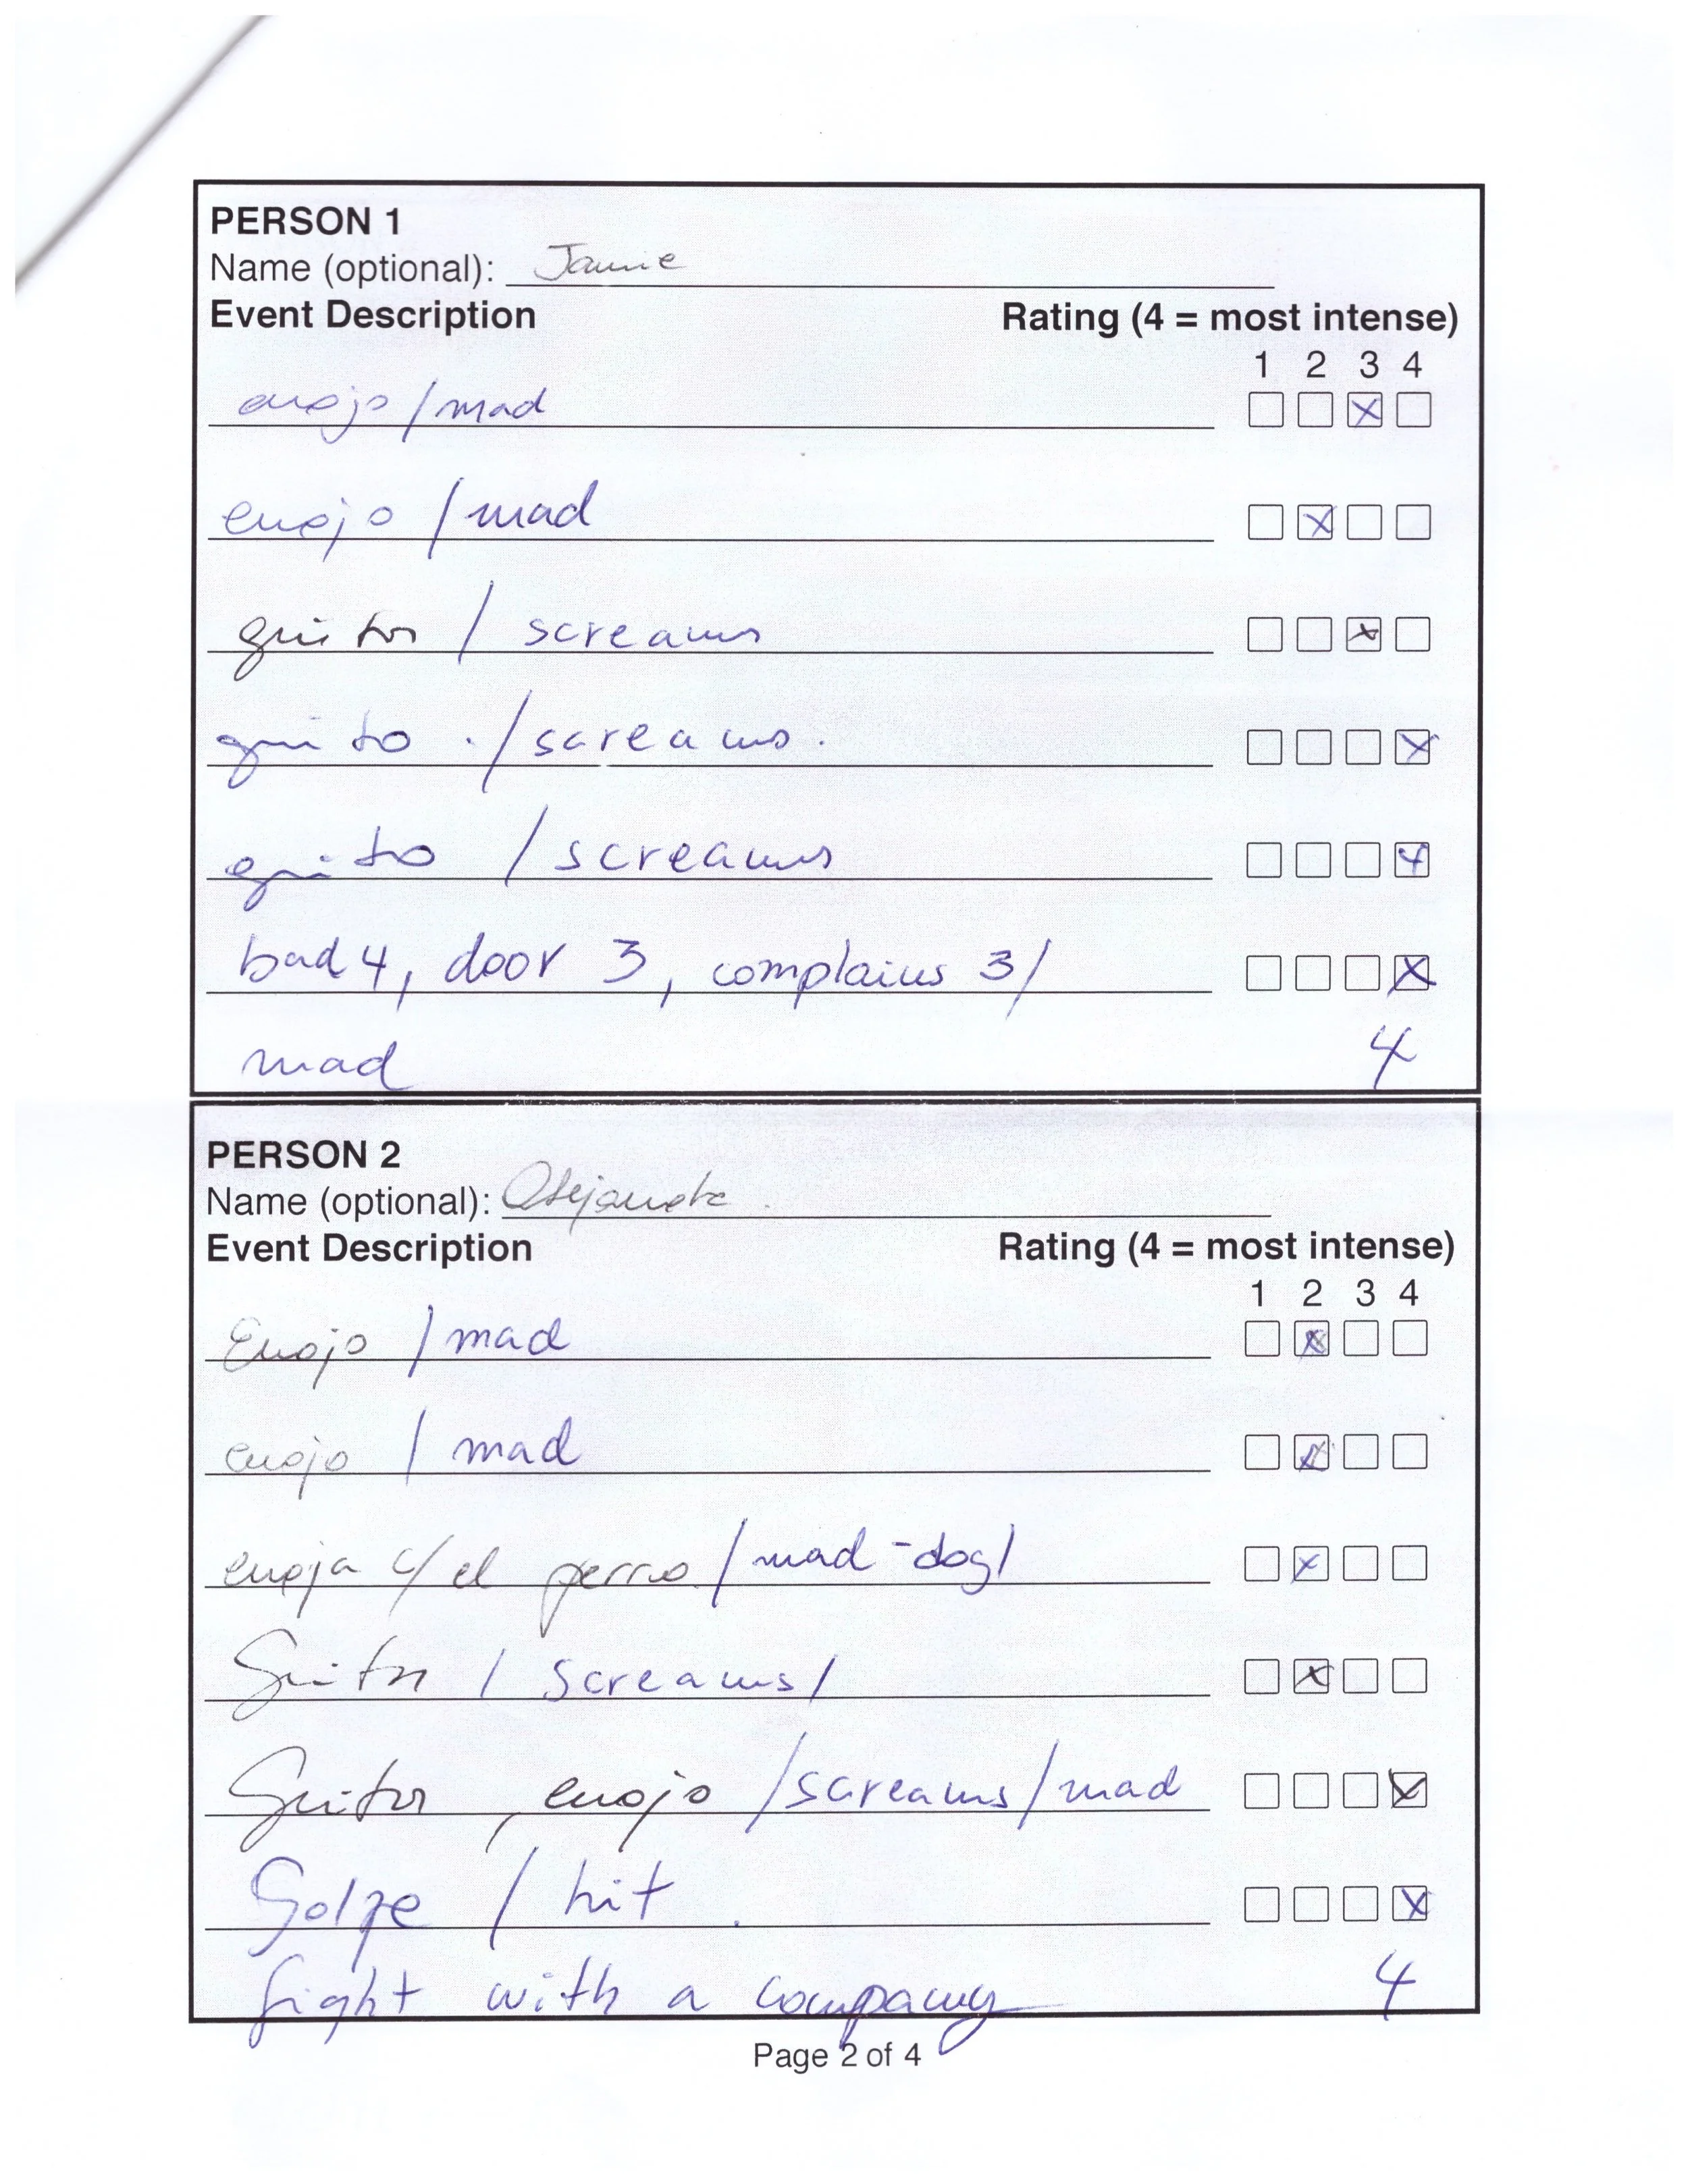 PERSON 1
Name (optional): Jamie
Event Description Rating (4 = most intense)
1 2 3 4
enojo / mad
enojo / mad
gritos / screams
grito . / screams.
grito / screams
bad 4, door 3, complains 3/
mad 4
PERSON 2
Name (optional):
Event Description Rating (4 = most intense)
1 2 3 4
Enojo / mad
enojo / mad
enoja c/ el perro / mad - dog/
Gritos / screams/
Gritos, enojo / screams / mad
Golpe / hit
fight with a company 4
Page 2 of 4